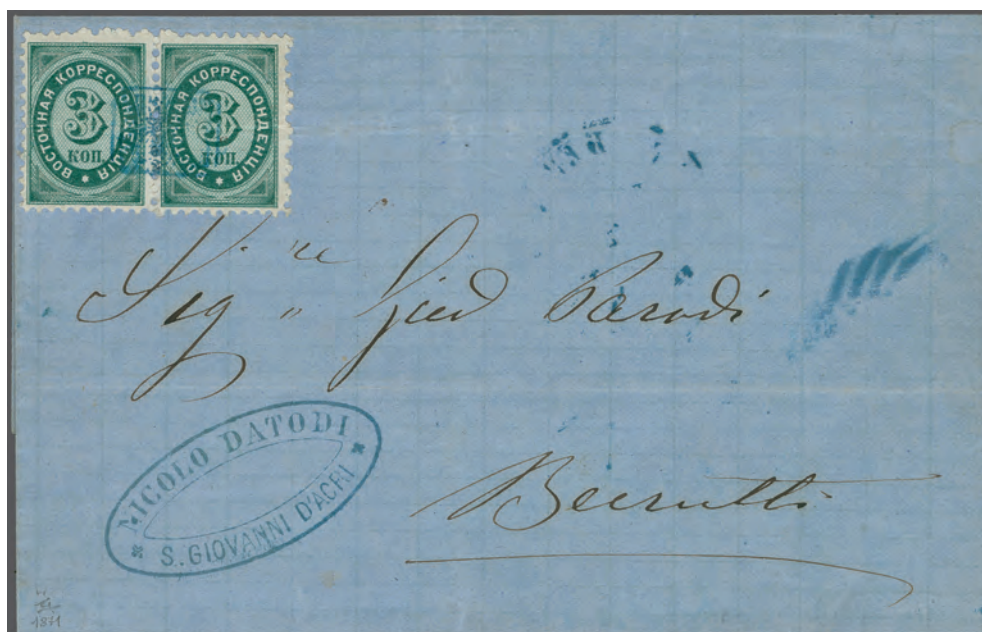 ВОСТОЧНАЯ КОРРЕСПОНДЕНЦІЯ
3
КОП.
ВОСТОЧНАЯ КОРРЕСПОНДЕНЦІЯ
3
КОП.
Sigre Gied Parodi
NICOLO DATODI
S. GIOVANNI D'ACRI
Beirutti
1871